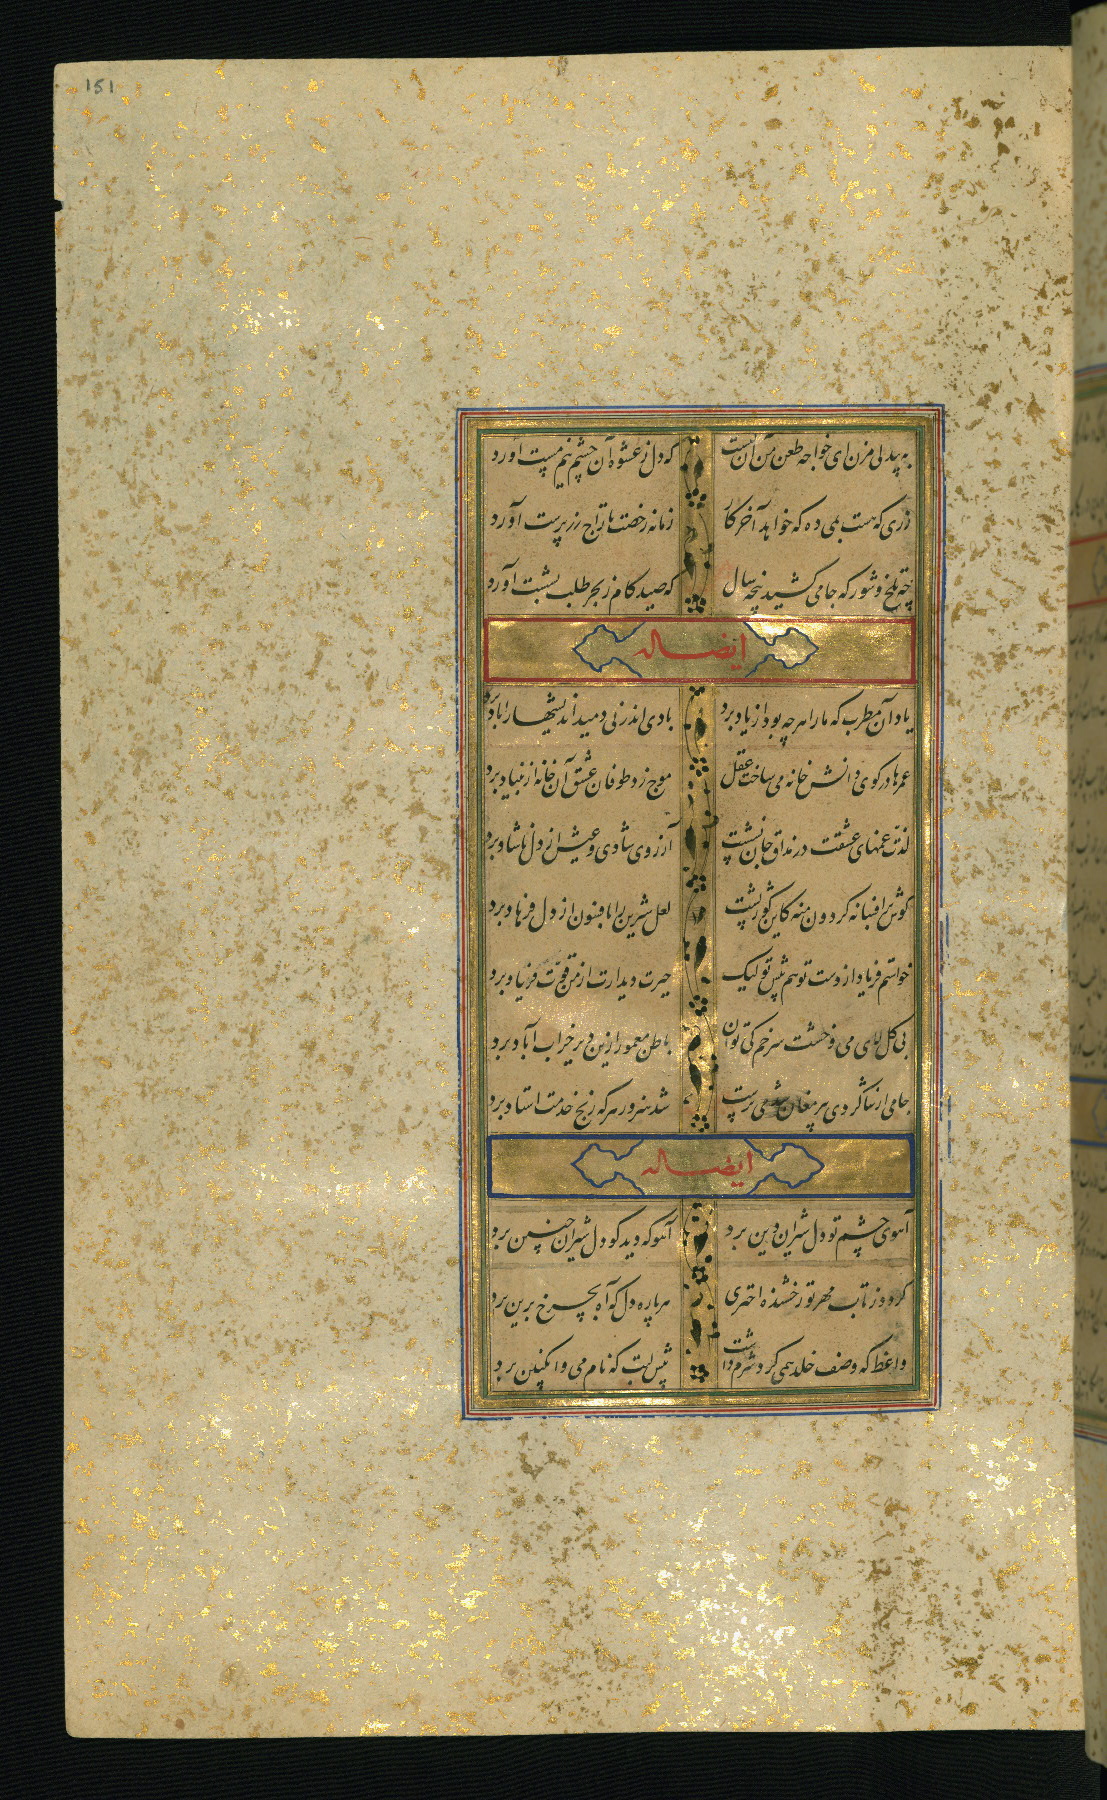 151
به بیدلی مزن ای خواجه طعن من آن نیست که دل ز عشوه آن چشم نیم مست آورد
زری که هست بمی ده که خواهد آخر کار زمانه رخصت تاراج زرپرست آورد
چه تلخ و شور که جامی کشید پنجه سال که صید کام ز بحر طلب بشست آورد
ایضا له
یاد آن مطرب که ما را هر چه بود از یاد برد بادی اندر نی دمید اندیشها را باد برد
عمرها در کوی دانش خانه می ساخت عقل موج زد طوفان عشق آن خانه از بنیاد برد
لذت غمهای عشقت در مذاق جان نشست آرزوی شادی و عیش از دل ناشاد برد
گوش بر افسانه گردون منه کاین گوژپشت لعل شیرین را بافسون از دل فرهاد برد
خواستم فریاد از دست تو هم پیش تو لیک حیرت دیدارت از من قوت فریاد برد
بی گل لای می و خشت سر خم کی توان باطن معمور ازین دیر خراب آباد برد
جامی از شاگردی پیر مغان شد می پرست شد هنرور هر که رنج خدمت استاد برد
ایضا له
آهوی چشم تو دل شیران دین برد آهو که دید کو دل شیران چنین برد
گردد ز تاب مهر تو رخشنده اختری هر پاره دل که آه بچرخ برین برد
واعظ که وصف خلد همی کرد شرم داشت پیش لبت که نام می و انگبین برد